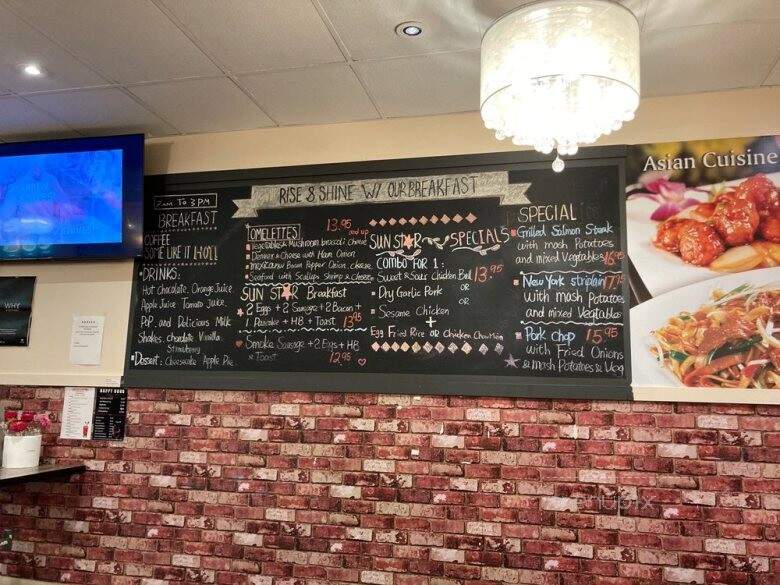 RISE & SHINE W/ OUR BREAKFAST
7AM TO 3PM
BREAKFAST
COFFEE
SOME LIKE IT HOT!
DRINKS:
Hot Chocolate, Orange Juice
Apple Juice Tomato Juice
POP and Delicious Milk
Shakes: Chocolate Vanilla
Strawberry
Dessert: Cheesecake Apple Pie
OMELETTES 13.95 and up
Vegetables & Mushroom broccoli
& Cheese with Ham Onion
Mexicano Bacon Pepper Onion cheese
Seafood with Scallops Shrimp & Cheese
SUN STAR Breakfast
2 Eggs + 2 Sausage + 2 Bacon +
1 Pancake + HB + Toast 13.95
Smokie Sausage + 2 Eggs + HB
+ Toast 12.95
SUN STAR SPECIALS
Combo For 1:
Sweet & Sour Chicken Ball 13.95
OR
Dry Garlic Pork
OR
Sesame Chicken
+
Egg Fried Rice or Chicken Chow Mein
SPECIAL
Grilled Salmon Steak
with mash Potatoes
and mixed Vegetables 16.95
New York striploin
with mash Potatoes
and mixed Vegtables
Pork chop 15.95
with Fried Onions
& Mash Potatoes & Veg
Asian Cuisine
WHY
HAPPY HOUR